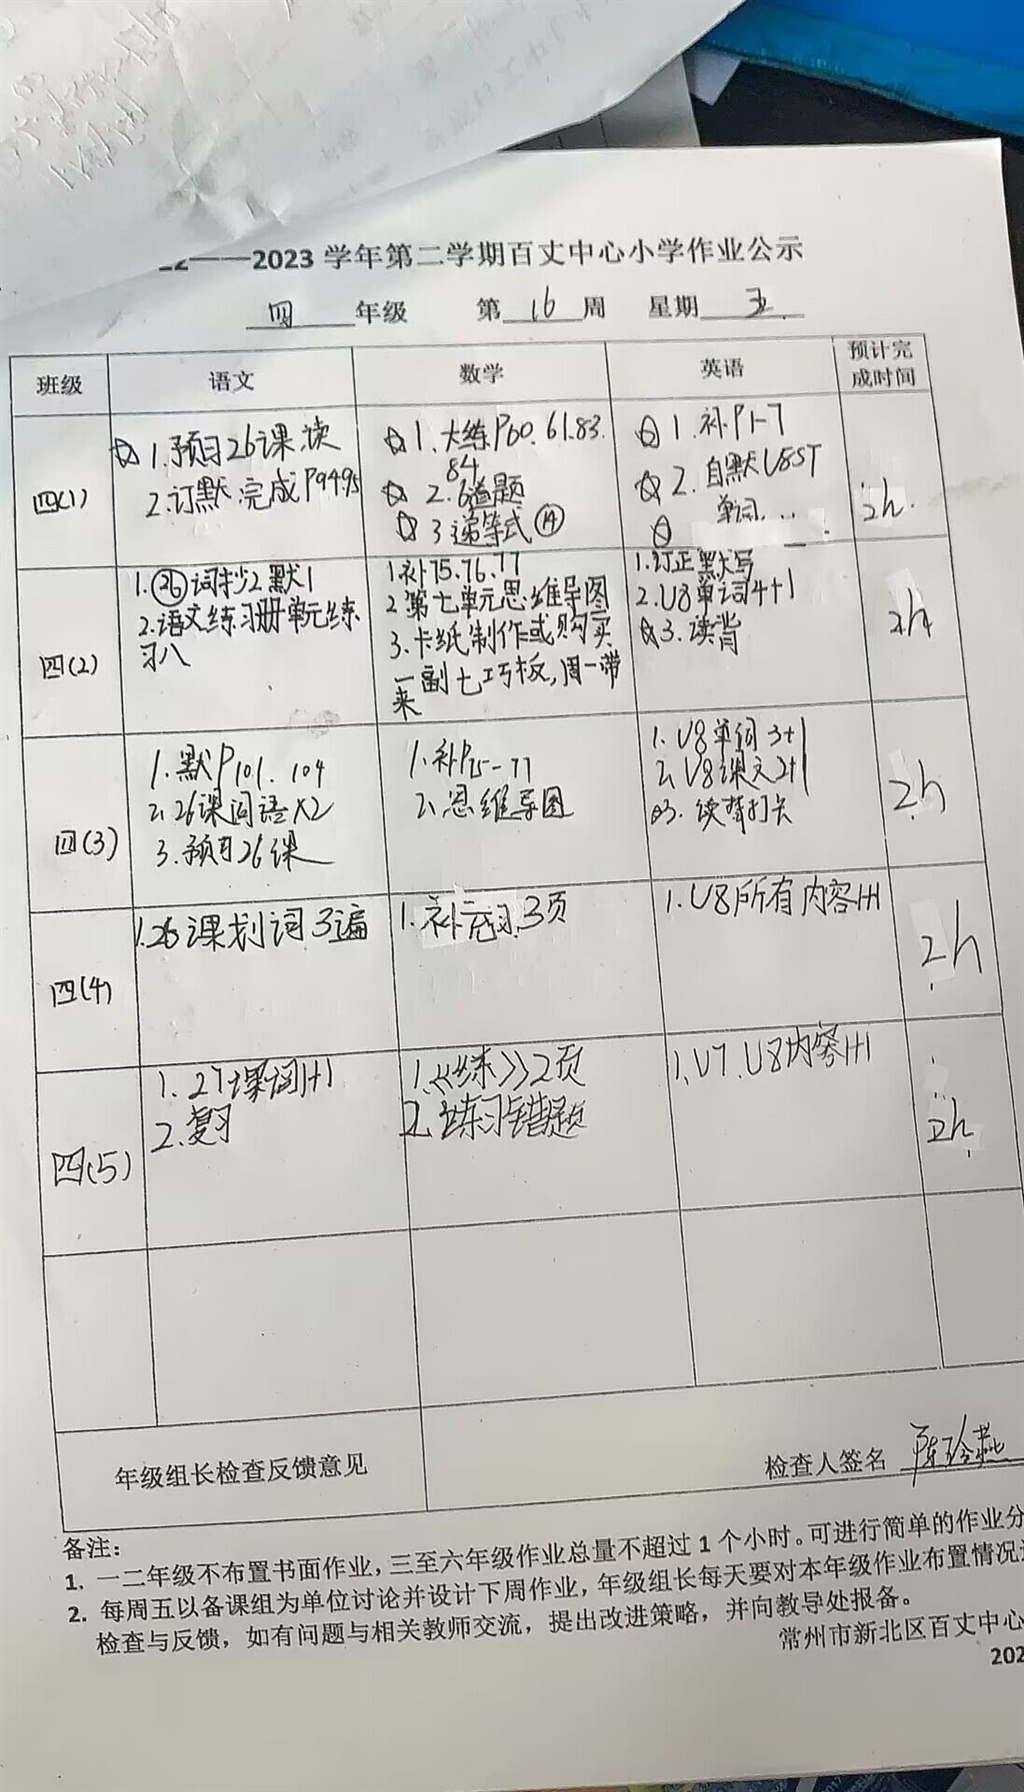 22——2023 学年第二学期百丈中心小学作业公示
四 年级 第 16 周 星期 五
班级 语文 数学 英语 预计完成时间
四(1)
☆ 1.预习26课,读
2.订默.完成P94.95
☆ 1.大练P60.61.83.
84
☆ 2. 6道题
☆ 3 递等式⑭
☆ 1.补P1-7
☆ 2.自默U8ST
☆ 单词...
2h.
四(2)
1.㉖词抄2默1
2.语文练习册单元练
习八
1.补75.76.77
2.第七单元思维导图
3.卡纸制作或购买
一副七巧板,周一带
来
1.订正默写
2.U8单词4+1
☆3.读背
2h
四(3)
1.默P101.104
2.26课词语×2
3.预习26课
1.补P75-77
2.思维导图
1.U8单词3+1
2.U8课文2+1
☆3.续背打卡
2h
四(4)
1.26课划词3遍
1.补充习.3页
1.U8所有内容1+1
2h
四(5)
1.27课词1+1
2.复习
1.《练》2页
2.练习错题
1.U7.U8内容1+1
2h
年级组长检查反馈意见
检查人签名 陈玲燕
备注:
1. 一二年级不布置书面作业,三至六年级作业总量不超过 1 个小时。可进行简单的作业分
2. 每周五以备课组为单位讨论并设计下周作业,年级组长每天要对本年级作业布置情况
检查与反馈,如有问题与相关教师交流,提出改进策略,并向教导处报备。
常州市新北区百丈中心
202